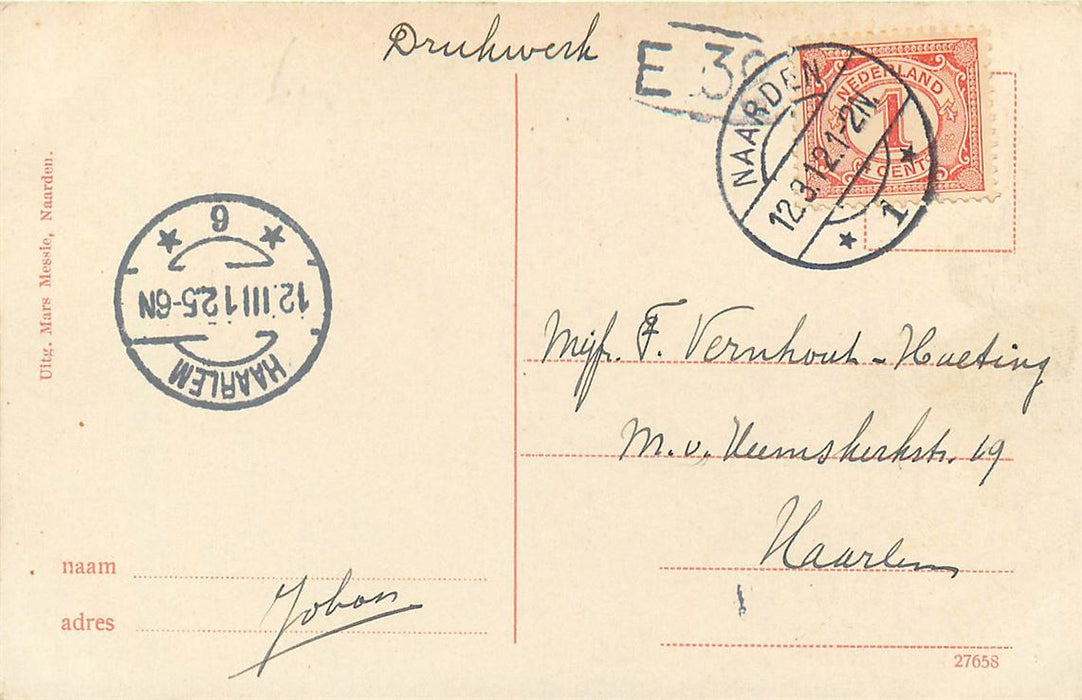 Drukwerk
E 3
NEDERLAND
1
CENT
NAARDEN
12.3.12.1-2N.
1
Uitg. Mars Messie, Naarden.
6
12.III 12.5-6N
HAARLEM
Mejfr. F. Vernhout-Hueting
M. v. Heemskerkstr. 19
Haarlem
naam
adres
Johan
27658